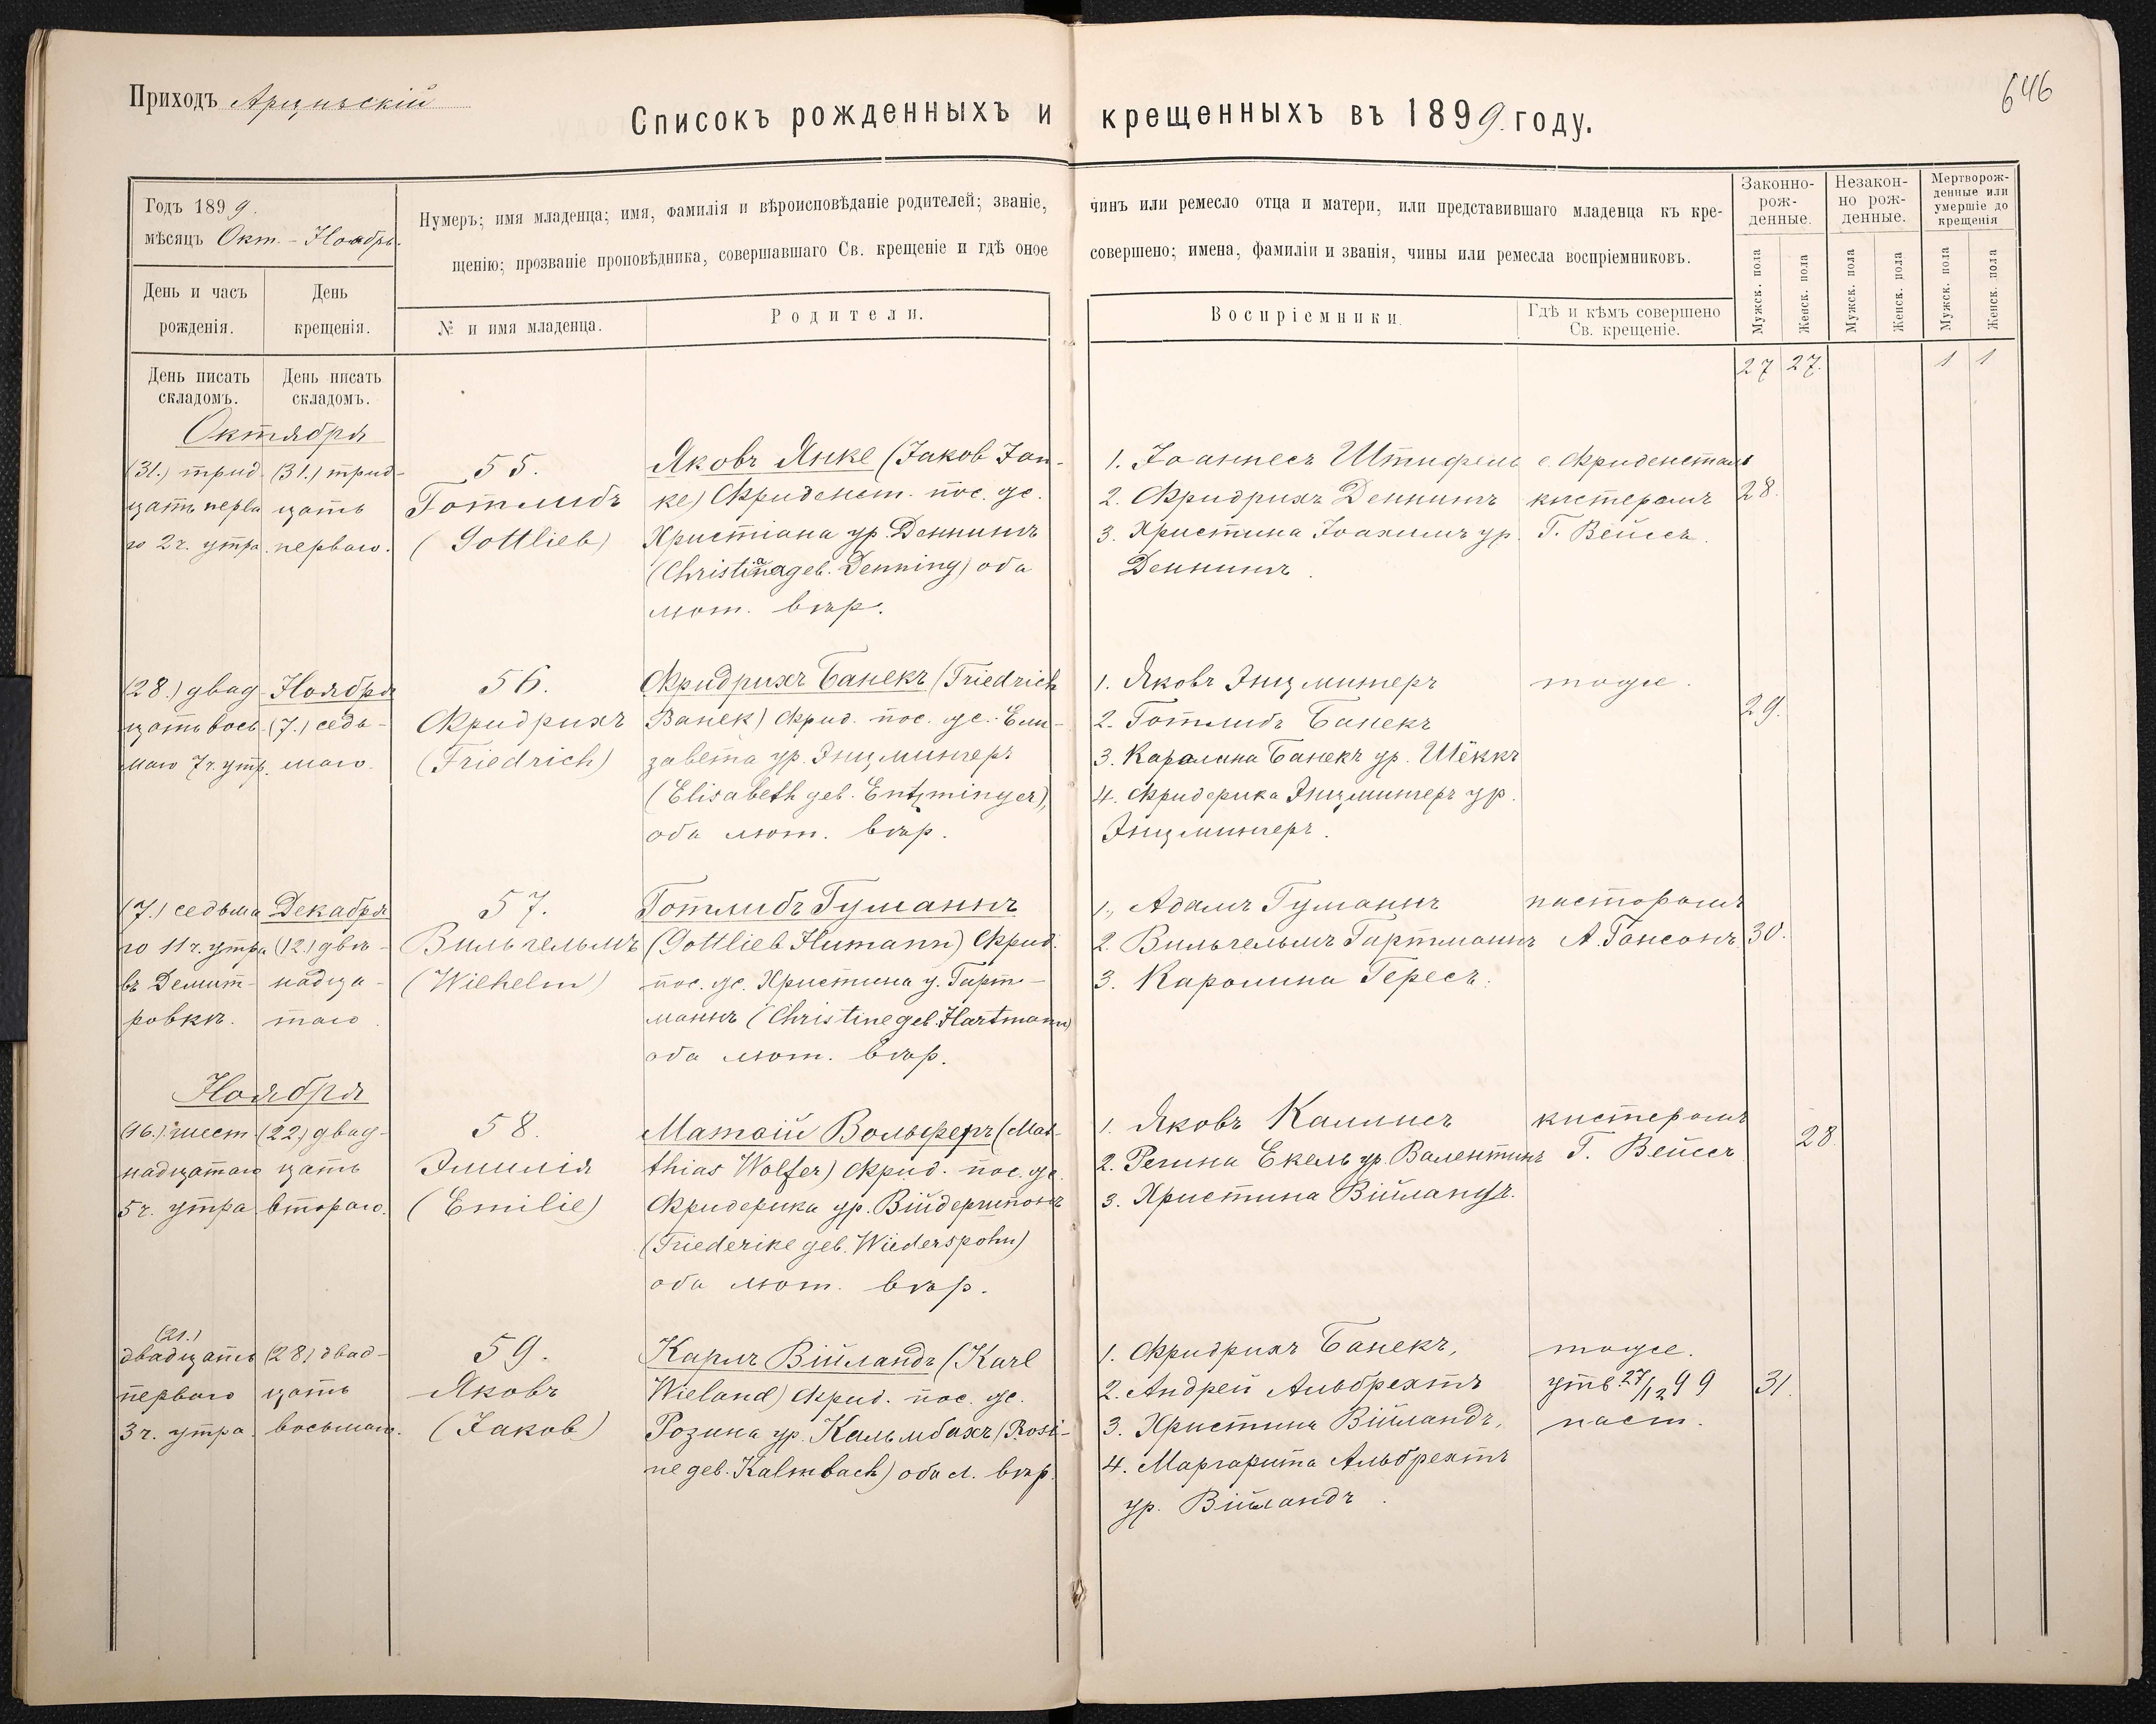 Приходъ Арцизскій
646
Списокъ рожденныхъ и крещенныхъ въ 1899. году.
Годъ 1899.
мѣсяцъ Окт. - Ноябрь.
День и часъ рожденія.
День крещенія.
Нумеръ; имя младенца; имя, фамилія и вѣроисповѣданіе родителей; званіе, чинъ или ремесло отца и матери, или представившаго младенца къ кре-
щенію; прозваніе проповѣдника, совершавшаго Св. крещеніе и гдѣ оное совершено; имена, фамиліи и званія, чины или ремесла воспріемниковъ.
№ и имя младенца.
Родители.
Воспріемники.
Гдѣ и кѣмъ совершено
Св. крещеніе.
Законно-
рож-
денные.
Незакон-
но рож-
денные.
Мертворож-
денные или
умершіе до
крещенія
Мужск. пола
Женск. пола
Мужск. пола
Женск. пола
Мужск. пола
Женск. пола
День писать
складомъ.
День писать
складомъ.
27 27. 1 1
Октября
(31.) трид-
цать перва
го 2 ч. утра
(31.) трид-
цать
перваго.
55.
Готлибъ
(Gottlieb)
Яковъ Янке (Jakob Jan-
ke) Фриденст. пос. же.
Христіана ур. Деннингъ
(Christina geb. Denning) оба
лют. вѣр.
1. Іоаннесъ Штифель
2. Фридрихъ Деннингъ
3. Христина Іоахимъ ур.
Деннингъ.
с. Фриденсталь
кистеромъ
Г. Вейссъ.
28.
(28.) двад-
цать вось-
маго 7 ч. утр.
Ноября
(7.) седь-
маго.
56.
Фридрихъ
(Friedrich)
Фридрихъ Банекъ (Friedrich
Banek) Фрид. пос. же. Ели-
завета ур. Энцмингеръ
(Elisabeth geb. Entzminger),
оба лют. вѣр.
1. Яковъ Энцмингеръ
2. Готлибъ Банекъ
3. Каролина Банекъ ур. Шёккъ
4. Фридерика Энцмингеръ ур.
Энцмингеръ.
тоже.
29.
(7.) седьма
го 11 ч. утра
въ Демит-
ровкѣ.
Декабря
(12.) двѣ-
надца-
таго.
57.
Вильгельмъ
(Wilhelm)
Готлибъ Гуманнъ
(Gottlieb Humann) Фрид.
пос. же. Христина у. Гарт-
маннъ (Christine geb. Hartmann)
оба лют. вѣр.
1., Адамъ Гуманнъ
2. Вильгельмъ Гартманнъ
3. Каролина Гересъ.
пасторомъ
А. Гансонъ.
30.
Ноября
(16.) шест-
надцатаго
5 ч. утра
(22.) двад-
цать
втораго.
58.
Эмилія
(Emilie)
Матѳій Вольферъ (Mat-
thias Wolfer) Фрид. пос. же.
Фридерика ур. Війдершпонъ
(Friederike geb. Wiederspohn)
оба лют. вѣр.
1. Яковъ Каллисъ
2. Регина Екель ур. Валентинъ
3. Христина Війландъ.
кистеромъ
Г. Вейссъ
28
(21.)
двадцать
перваго
3 ч. утра
(28.) двад-
цать
восьмаго.
59.
Яковъ
(Jakob)
Карлъ Війландъ (Karl
Wieland) Фрид. пос. же.
Розина ур. Кальмбахъ (Rosi-
ne geb. Kalmbach) оба л. вѣр.
1. Фридрихъ Банекъ,
2. Андрей Альбрехтъ
3. Христина Війландъ,
4. Маргарита Альбрехтъ
ур. Війландъ.
тоже.
утв. 27/12 99
паст.
31.